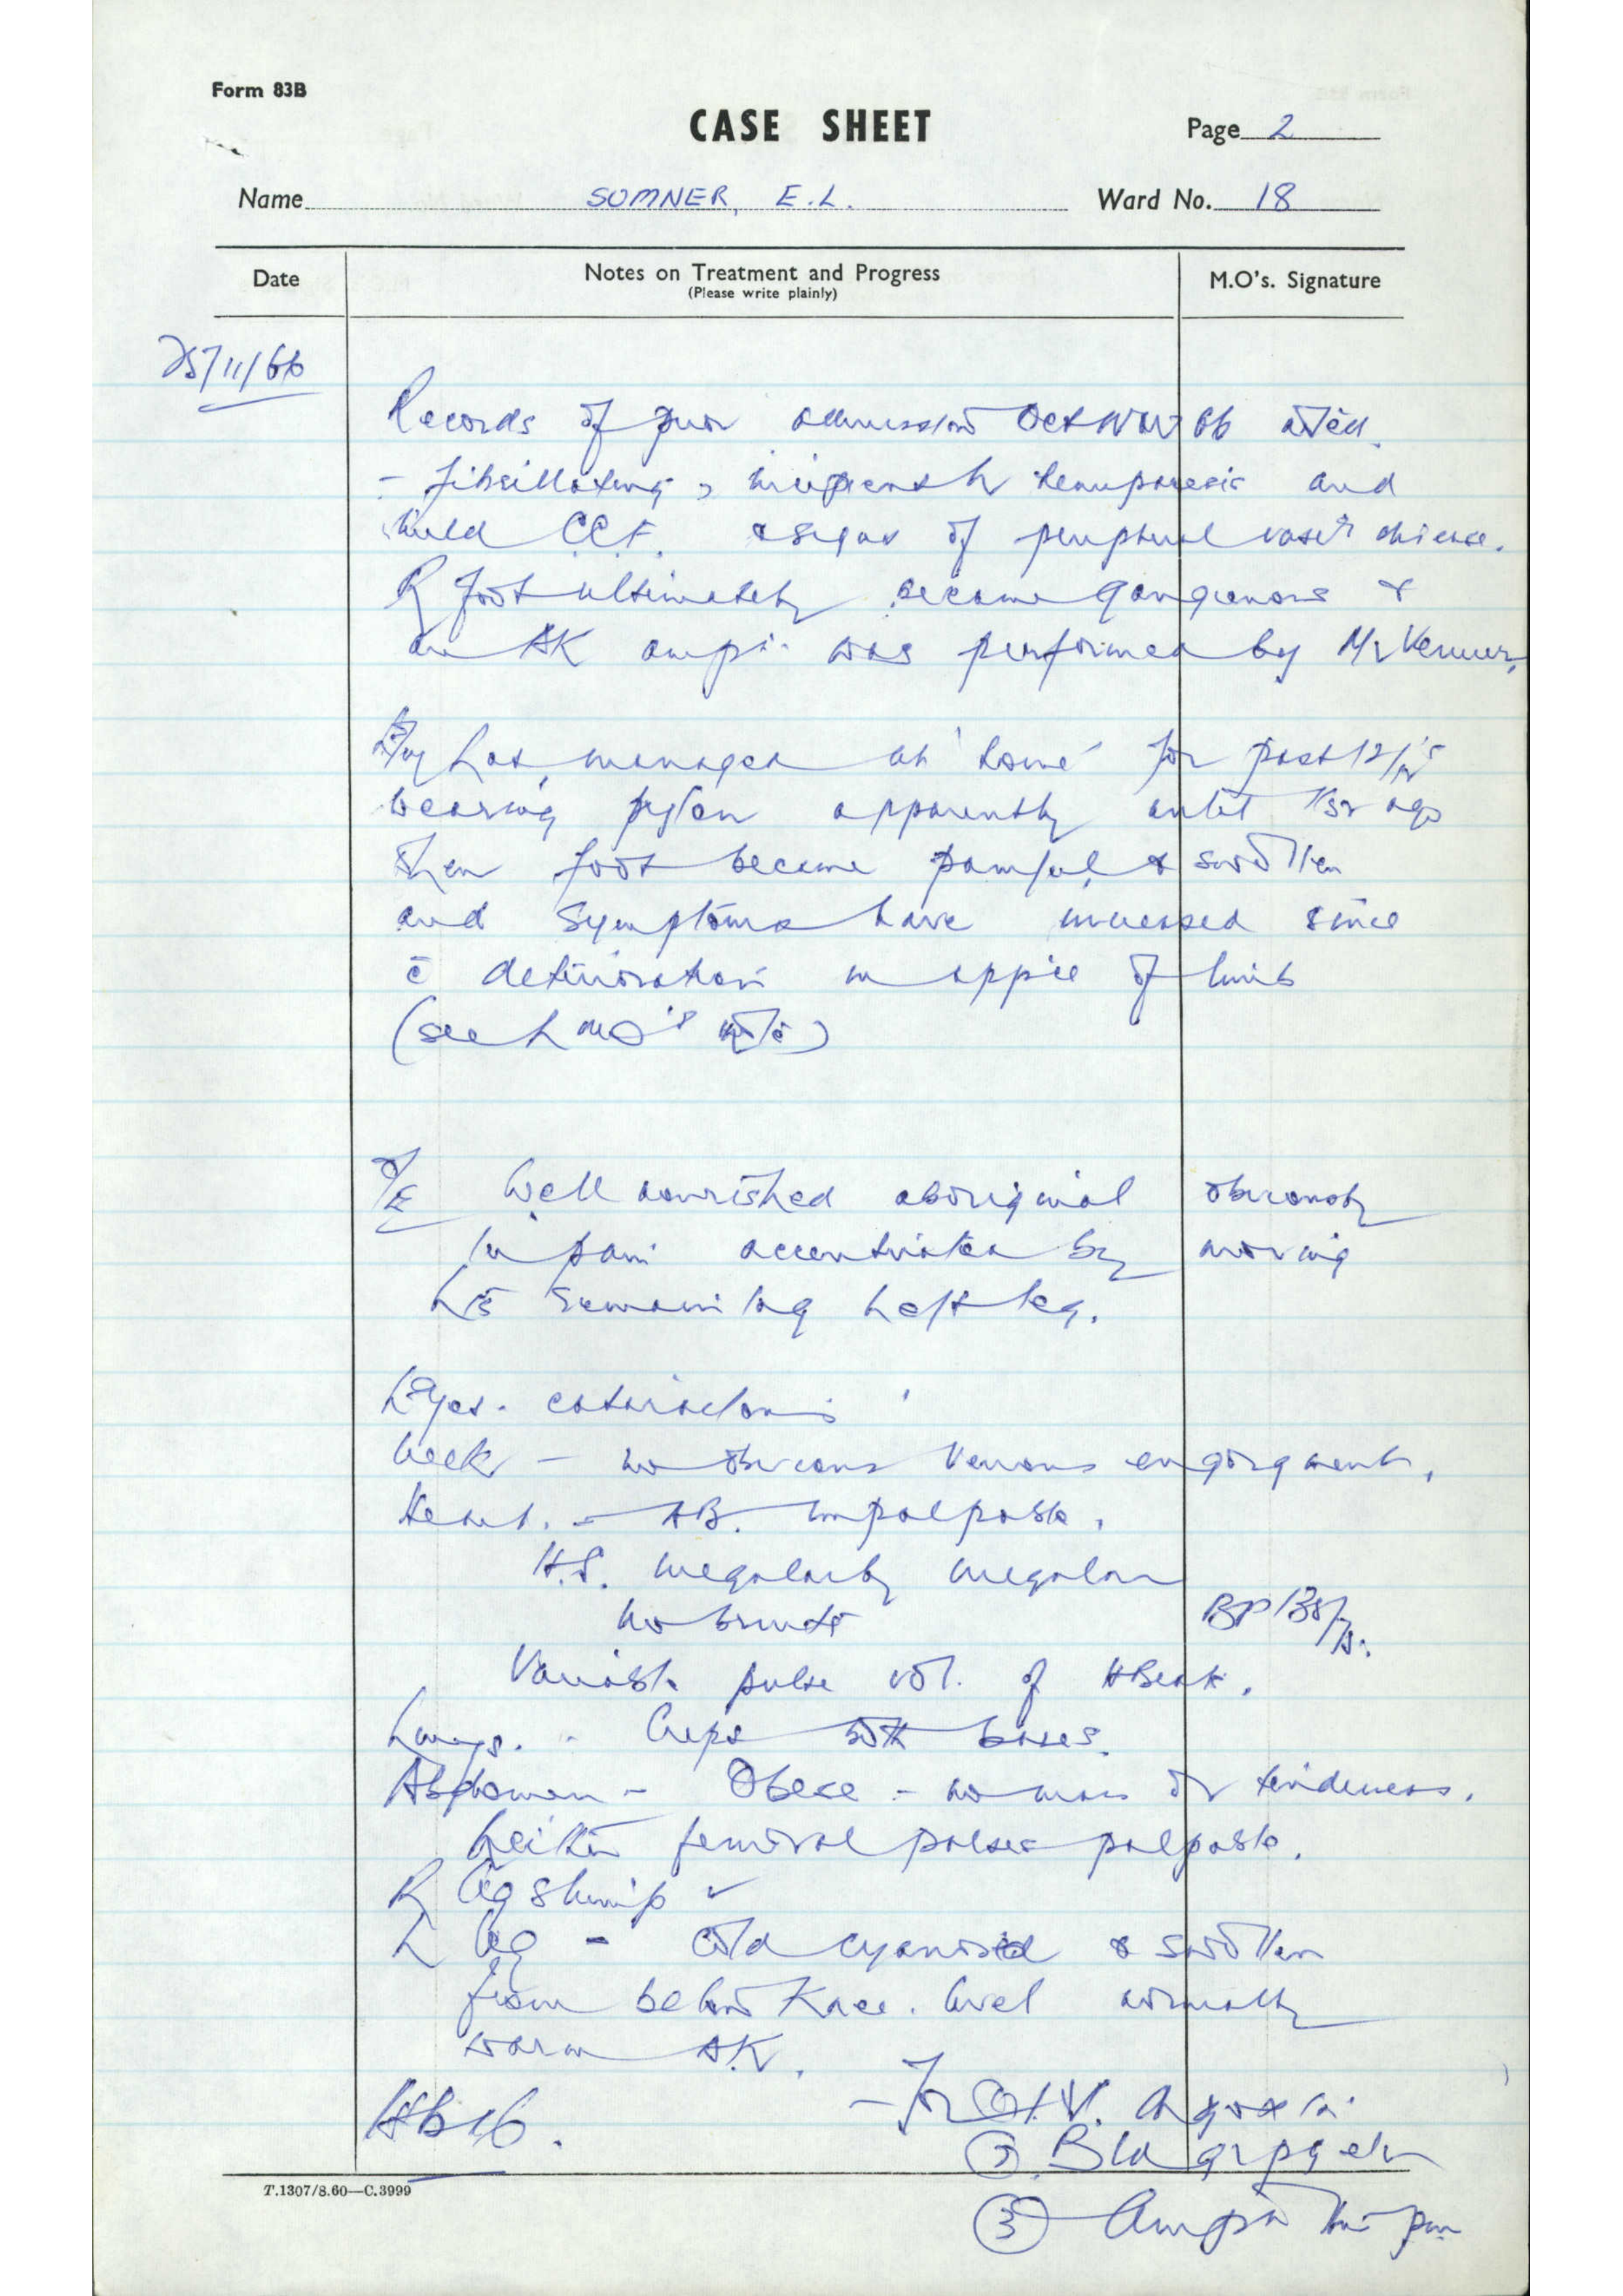 Form 83B
CASE SHEET
Page 2
Name SUMNER, E.L.
Ward No. 18
Date
Notes on Treatment and Progress
(Please write plainly)
M.O's. Signature
25/11/66
Records of prior admission Oct Nov 66
- fibrillating, hemiparesis and
mild CCF. signs of peripheral disease.
R foot ultimately became gangrenous &
an AK amp. was performed by Mr
has managed at 'home' for past 12/12
wearing pylon apparently until ago
then foot became painful & swollen
and symptoms have increased since
c̄ deterioration in app'ce of limb
(see LMO's note)
O/E Well nourished aboriginal obviously
in pain accentuated by moving
his remaining left leg.
Eyes.
Neck - no obvious venous engorgement.
Heart. - AB. impalpable.
H.S. irregularly irregular
no bruits
BP
Variable pulse vol. of
Lungs. - Creps both bases.
Abdomen - Obese - no mass or tenderness.
Neither femoral pulses palpable.
R leg stump ✓
L leg - cold cyanosed & swollen
from below knee. level normally
warm AK.
- for I.V.
② Bld grp
③
T.1307/8.60—C.3999